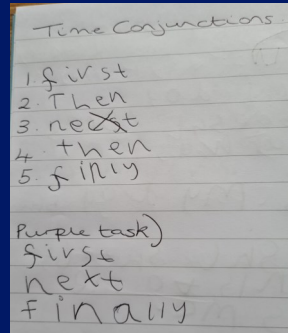 Time Conjunctions
1. first
2. Then
3. necxt
4. then
5. finly
Purple task)
first
next
finally